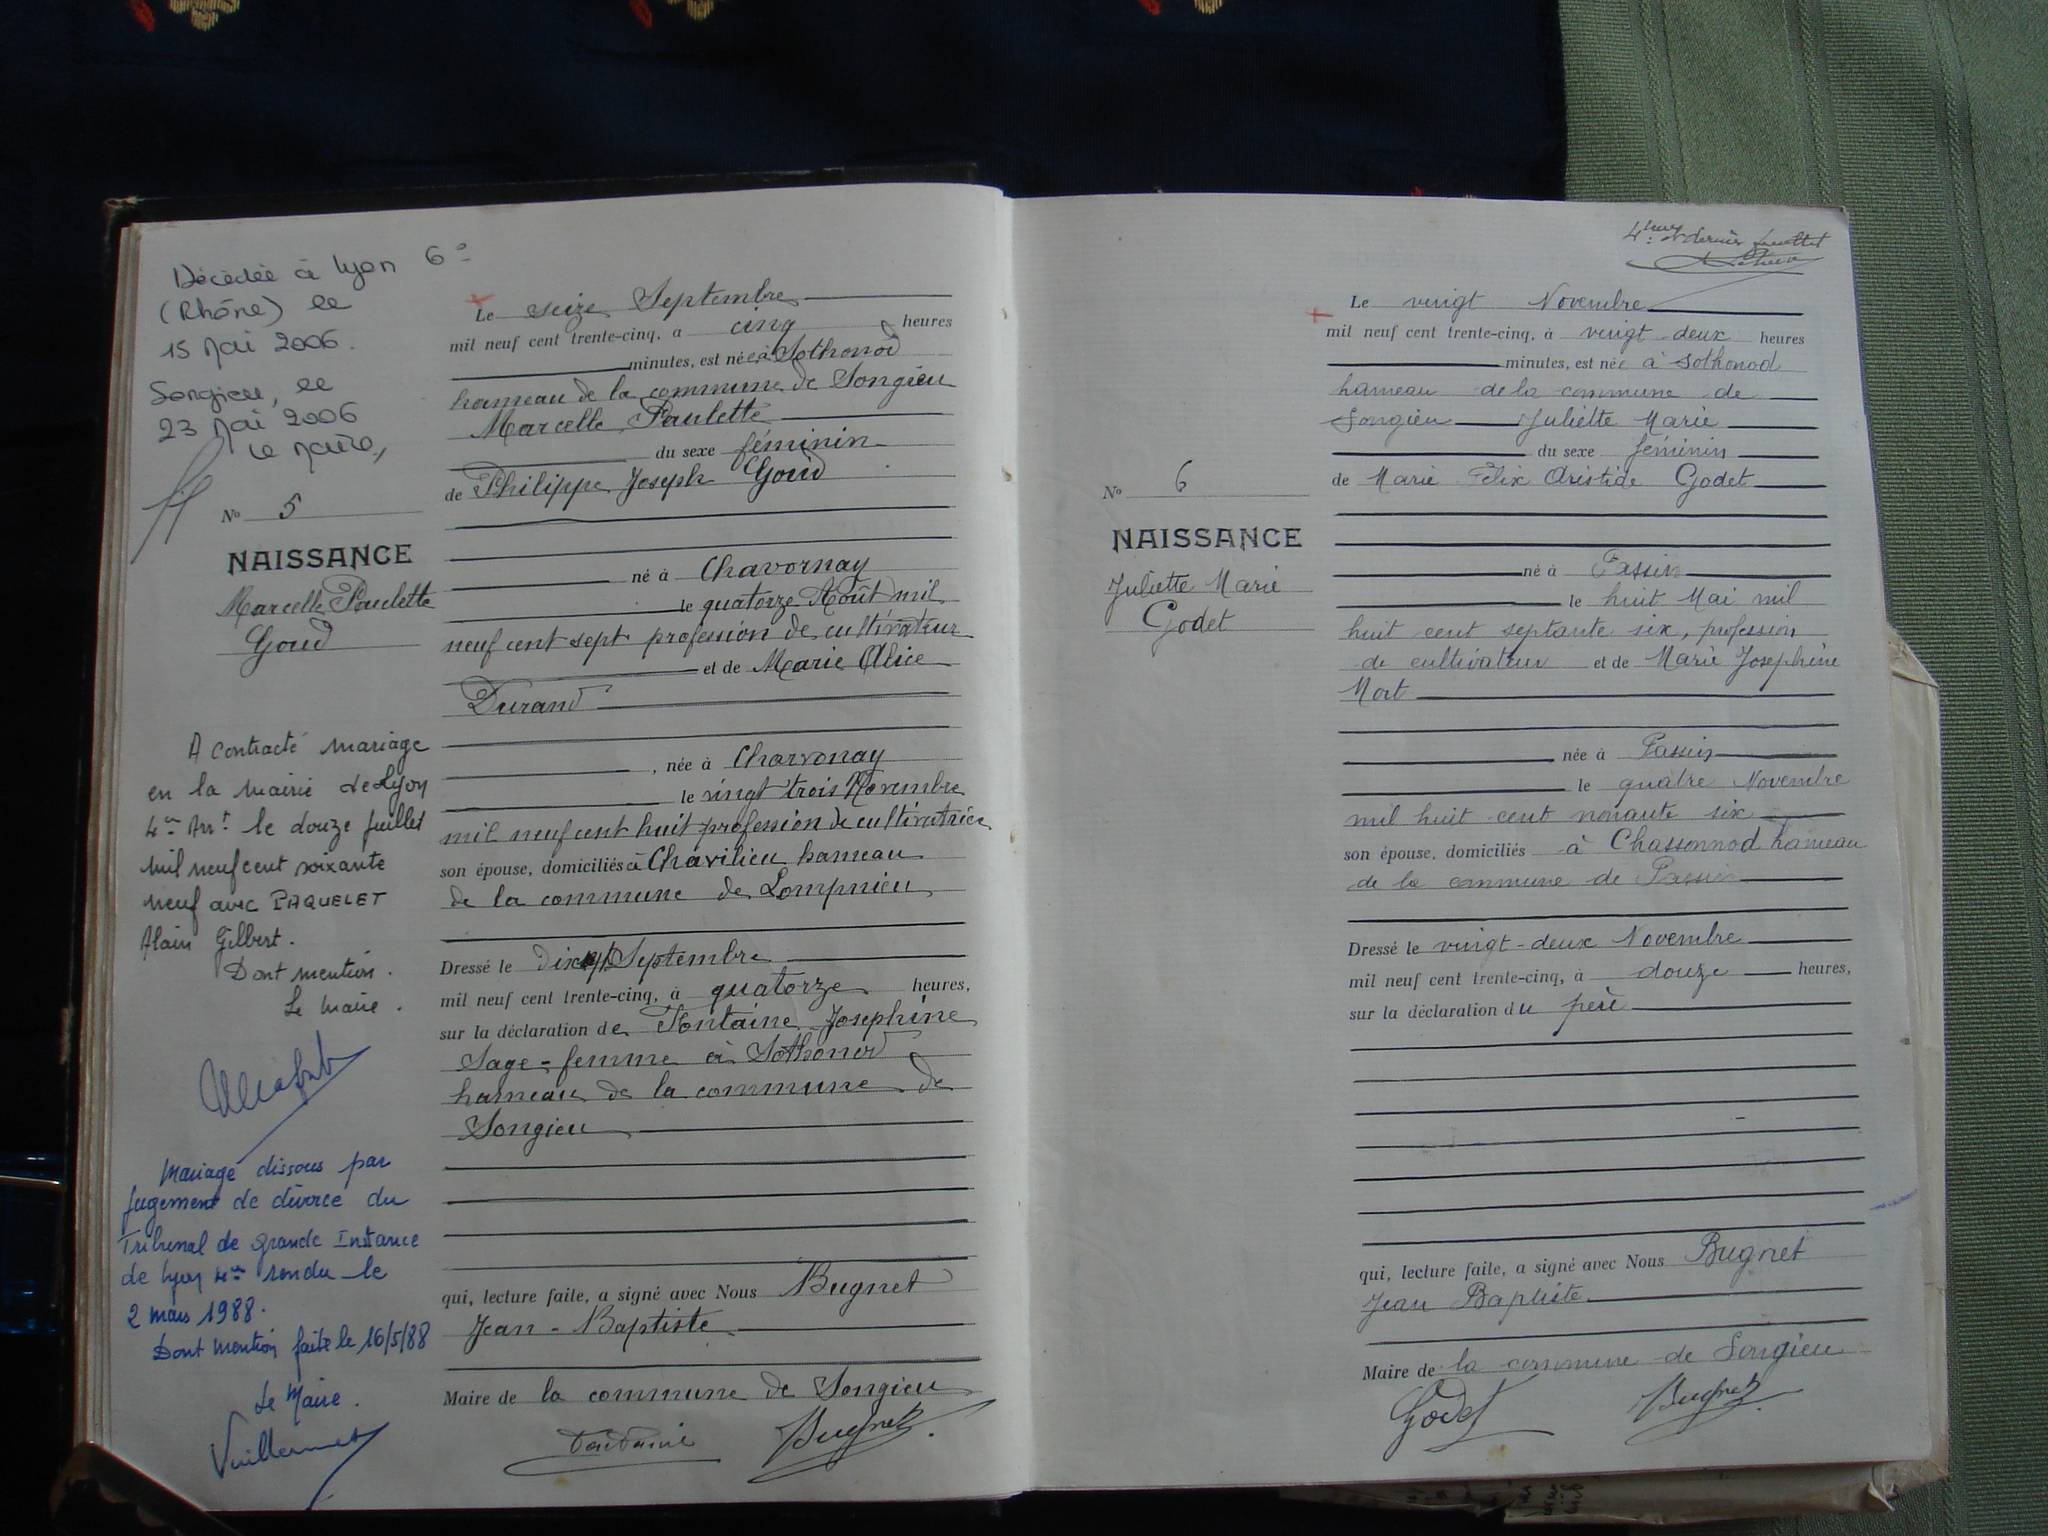 Décédée à Lyon 6e
(Rhône) le
15 Mai 2006.
Songieu, le
23 Mai 2006
Le Maire,
No 5
NAISSANCE
Marcelle Paulette
Goud
A contracté mariage
en la mairie de Lyon
4e Arrt le douze Juillet
mil neuf cent soixante
neuf avec PAQUELET
Alain Gilbert.
Dont mention.
Le Maire.
Mariage dissous par
jugement de divorce du
Tribunal de grande Instance
de Lyon 4e rendu le
2 mars 1988.
Dont mention faite le 16/5/88
Le Maire.
Vuillermet
Le seize Septembre
mil neuf cent trente-cinq, à cinq heures
minutes, est née à Sothonod
hameau de la commune de Songieu
Marcelle Paulette
du sexe féminin
de Philippe Joseph Goud
né à Chavornay
le quatorze Août mil
neuf cent sept profession de cultivateur
et de Marie Alice
Durand
, née à Charvonay
le vingt trois Novembre
mil neuf cent huit profession de cultivatrice
son épouse, domiciliés à Chavilieu hameau
de la commune de Lompnieu
Dressé le dix Septembre
mil neuf cent trente-cinq, à quatorze heures,
sur la déclaration de Fontaine Joséphine
Sage-femme à Sothonod
hameau de la commune de
Songieu
qui, lecture faite, a signé avec Nous Bugnet
Jean-Baptiste
Maire de la commune de Songieu
Fontaine Bugnet
4eme et dernier feuillet
No 6
NAISSANCE
Juliette Marie
Godet
Le vingt Novembre
mil neuf cent trente-cinq, à vingt-deux heures
minutes, est née à Sothonod
hameau de la commune de
Songieu Juliette Marie
du sexe féminin
de Marie Félix Aristide Godet
né à Passin
le huit Mai mil
huit cent septante six, profession
de cultivateur et de Marie Josephine
Mort
née à Passin
le quatre Novembre
mil huit cent nonante six
son épouse, domiciliés à Chassonnod hameau
de la commune de Passin
Dressé le vingt-deux Novembre
mil neuf cent trente-cinq, à douze heures,
sur la déclaration du père
qui, lecture faite, a signé avec Nous Bugnet
Jean Baptiste
Maire de la commune de Songieu
Godet Bugnet